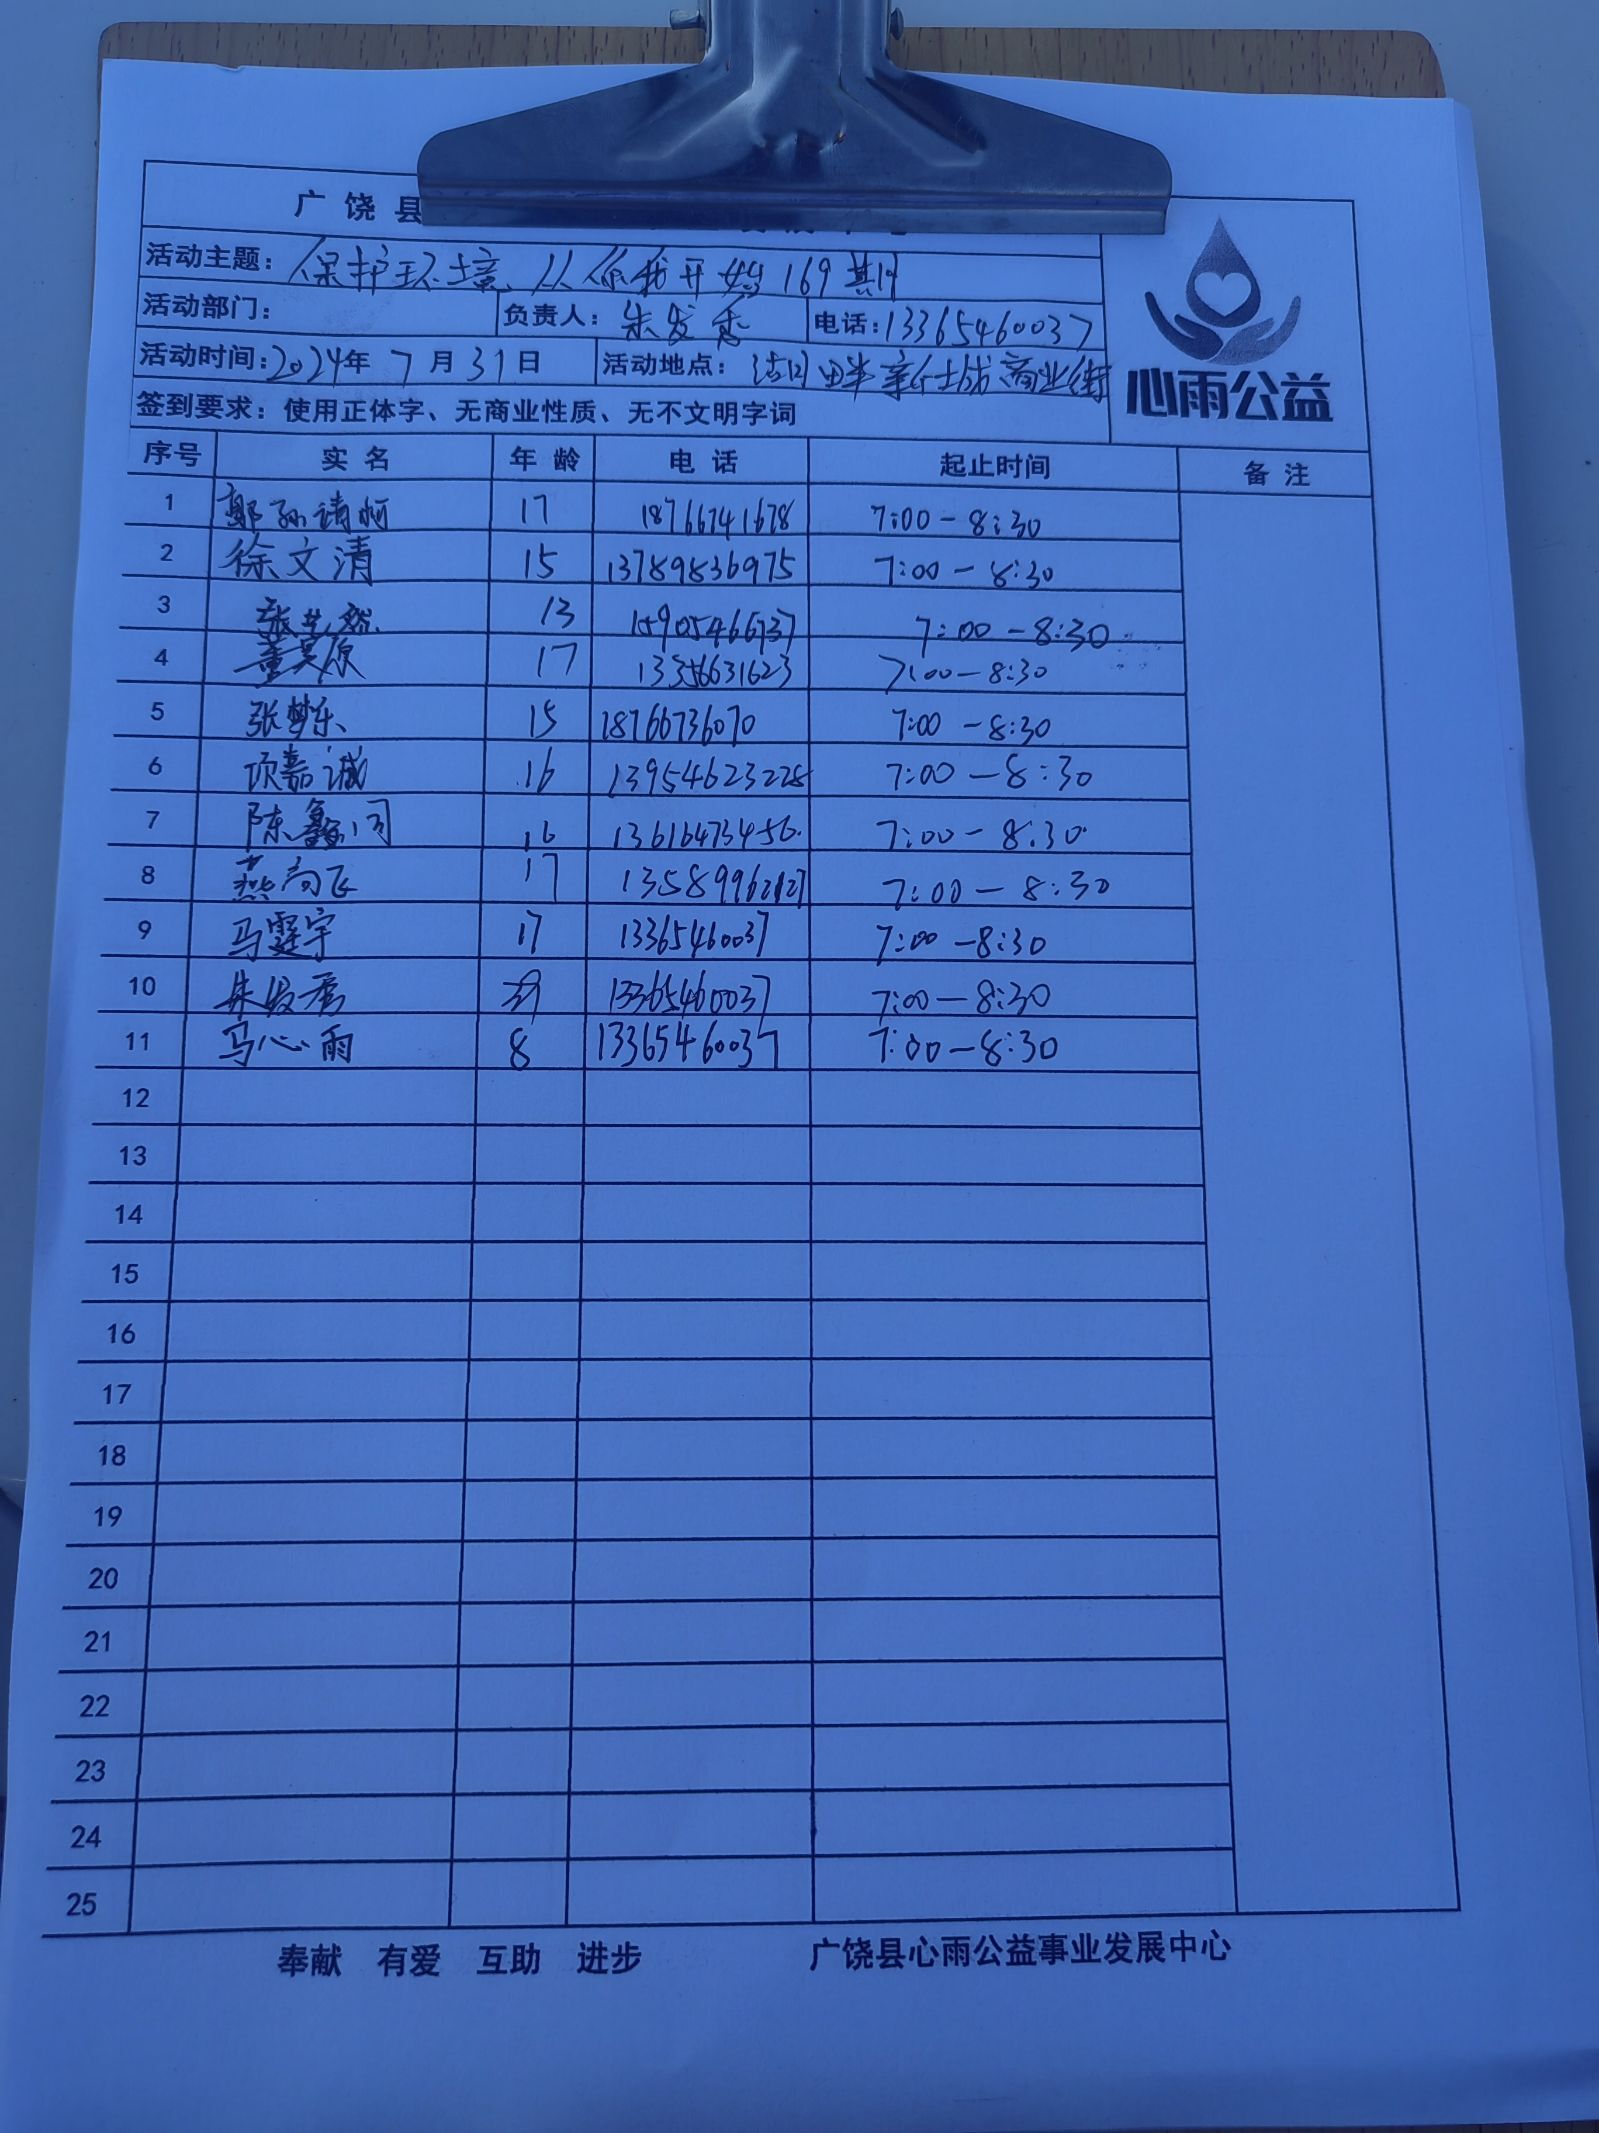 广饶县
活动主题：保护环境、从你我开始169期
活动部门： 负责人：朱发秀 电话：13365460037
活动时间：2024年7月31日 活动地点：洁口 新城商业街
签到要求：使用正体字、无商业性质、无不文明字词
心雨公益
序号 实名 年龄 电话 起止时间 备注
1 郭孙靖 17 18766741678 7:00-8:30
2 徐文清 15 13789836975 7:00-8:30
3 张艺然 13 15905466737 7:00-8:30
4 董昊原 17 13356631623 7:00-8:30
5 张梦乐 15 18766736070 7:00-8:30
6 项嘉诚 16 13954623228 7:00-8:30
7 陈鑫同 16 13616473456 7:00-8:30
8 燕向飞 17 7:00-8:30
9 马霆宇 17 13365460037 7:00-8:30
10 朱发秀 39 13365460037 7:00-8:30
11 马心雨 8 13365460037 7:00-8:30
12
13
14
15
16
17
18
19
20
21
22
23
24
25
奉献 有爱 互助 进步 广饶县心雨公益事业发展中心